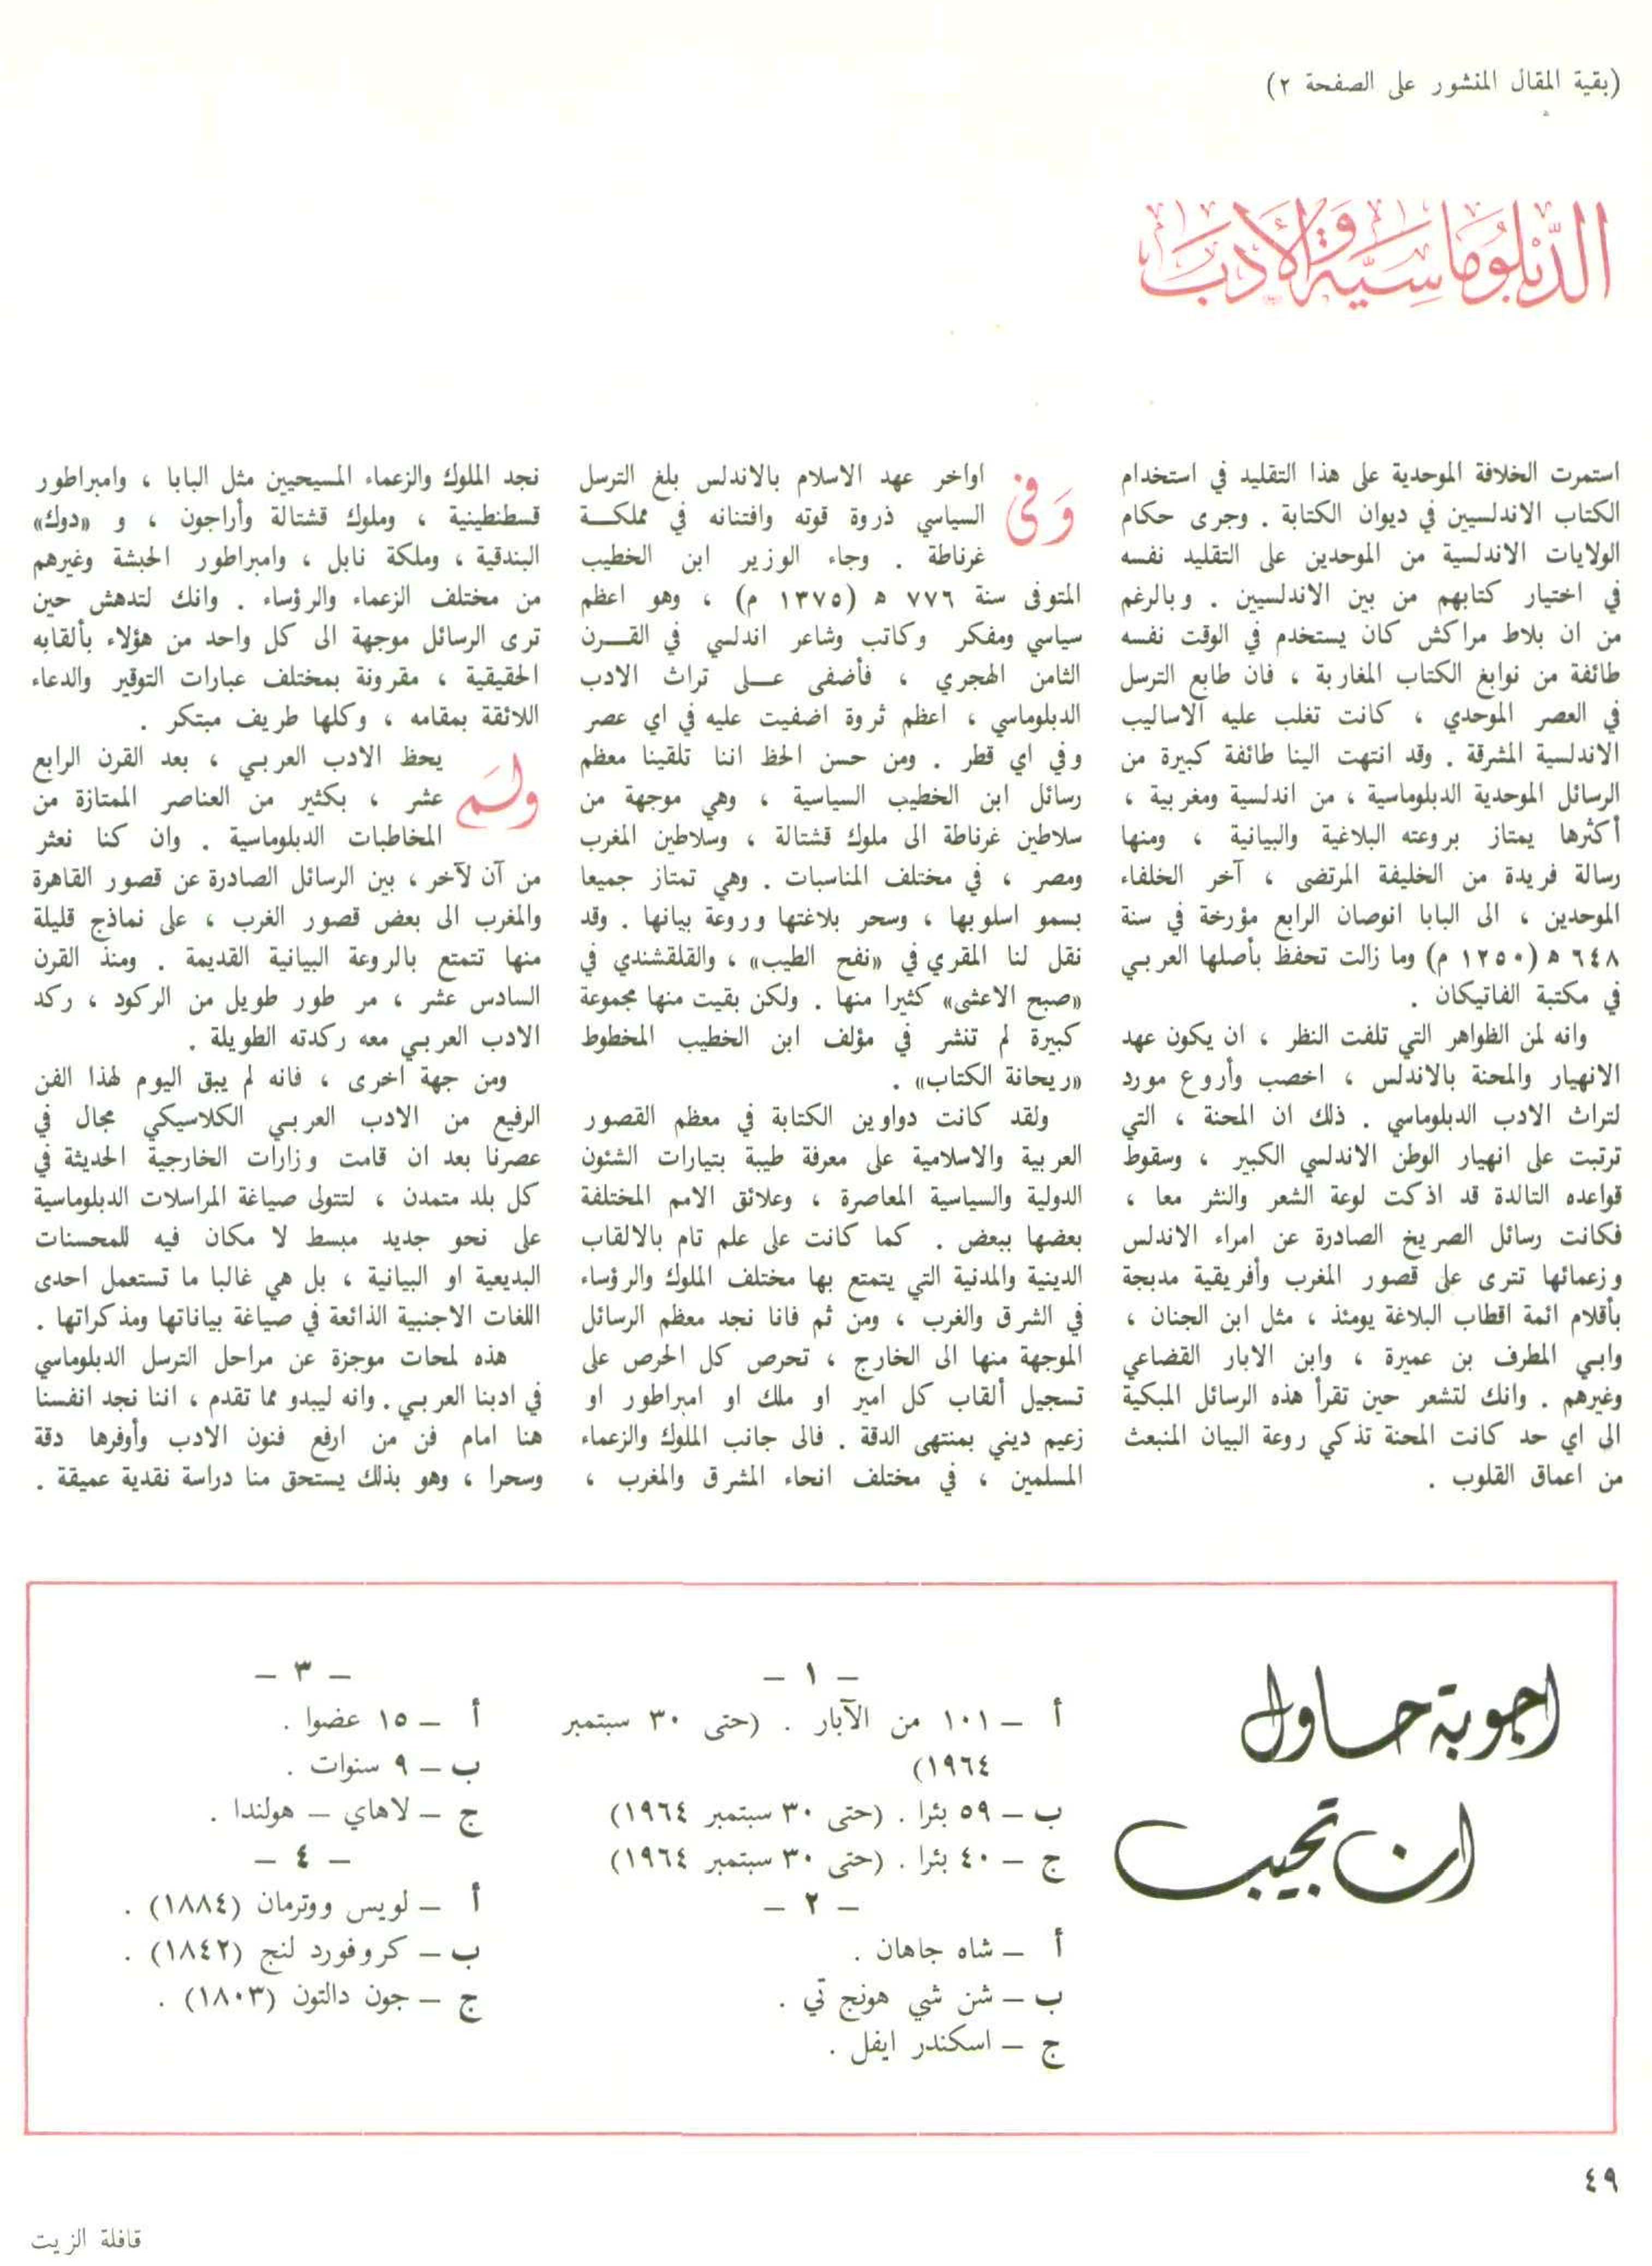 (بقية المقال المنشور على الصفحة ٢)
الدِّبلُومَاسِيَّة وَالأَدَبْ
استمرت الخلافة الموحدية على هذا التقليد في استخدام
الكتاب الاندلسيين في ديوان الكتابة . وجرى حكام
الولايات الاندلسية من الموحدين على التقليد نفسه
في اختيار كتابهم من بين الاندلسيين . وبالرغم
من ان بلاط مراكش كان يستخدم في الوقت نفسه
طائفة من نوابغ الكتاب المغاربة ، فان طابع الترسل
في العصر الموحدي ، كانت تغلب عليه الاساليب
الاندلسية المشرقة . وقد انتهت الينا طائفة كبيرة من
الرسائل الموحدية الدبلوماسية ، من اندلسية ومغربية ،
أكثرها يمتاز بروعته البلاغية والبيانية ، ومنها
رسالة فريدة من الخليفة المرتضى ، آخر الخلفاء
الموحدين ، الى البابا انوصان الرابع مؤرخة في سنة
٦٤٨ ه (١٢٥٠ م) وما زالت تحفظ بأصلها العربي
في مكتبة الفاتيكان .
وانه لمن الظواهر التي تلفت النظر ، ان يكون عهد
الانهيار والمحنة بالاندلس ، اخصب وأروع مورد
لتراث الادب الدبلوماسي . ذلك ان المحنة ، التي
ترتبت على انهيار الوطن الاندلسي الكبير ، وسقوط
قواعده التالدة قد اذكت لوعة الشعر والنثر معا ،
فكانت رسائل الصريخ الصادرة عن امراء الاندلس
وزعمائها تترى على قصور المغرب وأفريقية مدبجة
بأقلام ائمة اقطاب البلاغة يومئذ ، مثل ابن الجنان ،
وابي المطرف بن عميرة ، وابن الابار القضاعي
وغيرهم . وانك لتشعر حين تقرأ هذه الرسائل المبكية
الى اي حد كانت المحنة تذكي روعة البيان المنبعث
من اعماق القلوب .
وَفى اواخر عهد الاسلام بالاندلس بلغ الترسل
السياسي ذروة قوته وافتنانه في مملكـــة
غرناطة . وجاء الوزير ابن الخطيب
المتوفى سنة ٧٧٦ ه (١٣٧٥ م) ، وهو اعظم
سياسي ومفكر وكاتب وشاعر اندلسي في القـــرن
الثامن الهجري ، فأضفى عـــلى تراث الادب
الدبلوماسي ، اعظم ثروة اضفيت عليه في اي عصر
وفي اي قطر . ومن حسن الحظ اننا تلقينا معظم
رسائل ابن الخطيب السياسية ، وهي موجهة من
سلاطين غرناطة الى ملوك قشتالة ، وسلاطين المغرب
ومصر ، في مختلف المناسبات . وهي تمتاز جميعا
بسمو اسلوبها ، وسحر بلاغتها وروعة بيانها . وقد
نقل لنا المقري في «نفح الطيب» ، والقلقشندي في
«صبح الاعشى» كثيرا منها . ولكن بقيت منها مجموعة
كبيرة لم تنشر في مؤلف ابن الخطيب المخطوط
«ريحانة الكتاب» .
ولقد كانت دواوين الكتابة في معظم القصور
العربية والاسلامية على معرفة طيبة بتيارات الشئون
الدولية والسياسية المعاصرة ، وعلائق الامم المختلفة
بعضها ببعض . كما كانت على علم تام بالالقاب
الدينية والمدنية التي يتمتع بها مختلف الملوك والرؤساء
في الشرق والغرب ، ومن ثم فانا نجد معظم الرسائل
الموجهة منها الى الخارج ، تحرص كل الحرص على
تسجيل ألقاب كل امير او ملك او امبراطور او
زعيم ديني بمنتهى الدقة . فالى جانب الملوك والزعماء
المسلمين ، في مختلف انحاء المشرق والمغرب ،
نجد الملوك والزعماء المسيحيين مثل البابا ، وامبراطور
قسطنطينية ، وملوك قشتالة وأراجون ، و «دوك»
البندقية ، وملكة نابل ، وامبراطور الحبشة وغيرهم
من مختلف الزعماء والرؤساء . وانك لتدهش حين
ترى الرسائل موجهة الى كل واحد من هؤلاء بألقابه
الحقيقية ، مقرونة بمختلف عبارات التوقير والدعاء
اللائقة بمقامه ، وكلها طريف مبتكر .
ولَم يحظ الادب العربي ، بعد القرن الرابع
عشر ، بكثير من العناصر الممتازة من
المخاطبات الدبلوماسية . وان كنا نعثر
من آن لآخر ، بين الرسائل الصادرة عن قصور القاهرة
والمغرب الى بعض قصور الغرب ، على نماذج قليلة
منها تتمتع بالروعة البيانية القديمة . ومنذ القرن
السادس عشر ، مر طور طويل من الركود ، ركد
الادب العربي معه ركدته الطويلة .
ومن جهة اخرى ، فانه لم يبق اليوم لهذا الفن
الرفيع من الادب العربي الكلاسيكي مجال في
عصرنا بعد ان قامت وزارات الخارجية الحديثة في
كل بلد متمدن ، لتتولى صياغة المراسلات الدبلوماسية
على نحو جديد مبسط لا مكان فيه للمحسنات
البديعية او البيانية ، بل هي غالبا ما تستعمل احدى
اللغات الاجنبية الذائعة في صياغة بياناتها ومذكراتها .
هذه لمحات موجزة عن مراحل الترسل الدبلوماسي
في ادبنا العربي . وانه ليبدو مما تقدم ، اننا نجد انفسنا
هنا امام فن من ارفع فنون الادب وأوفرها دقة
وسحرا ، وهو بذلك يستحق منا دراسة نقدية عميقة .
اجوبة حاول
ان تجيب
– ١ –
أ – ١٠١ من الآبار . (حتى ٣٠ سبتمبر
١٩٦٤)
ب – ٥٩ بئرا . (حتى ٣٠ سبتمبر ١٩٦٤)
ج – ٤٠ بئرا . (حتى ٣٠ سبتمبر ١٩٦٤)
– ٢ –
أ – شاه جاهان .
ب – شن شي هونج تي .
ج – اسكندر ايفل .
– ٣ –
أ – ١٥ عضوا .
ب – ٩ سنوات .
ج – لاهاي – هولندا .
– ٤ –
أ – لويس ووترمان (١٨٨٤) .
ب – كروفورد لنج (١٨٤٢) .
ج – جون دالتون (١٨٠٣) .
٤٩
قافلة الزيت